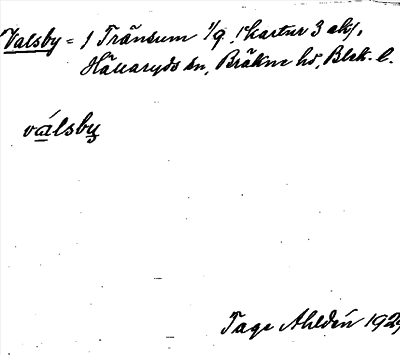 Valsby = 1 Tränsum 1/9. kartur 3 akf,
Hällaryds sn, Bräkne hd, Blek. l.
válsby
Tage Ahldén 192